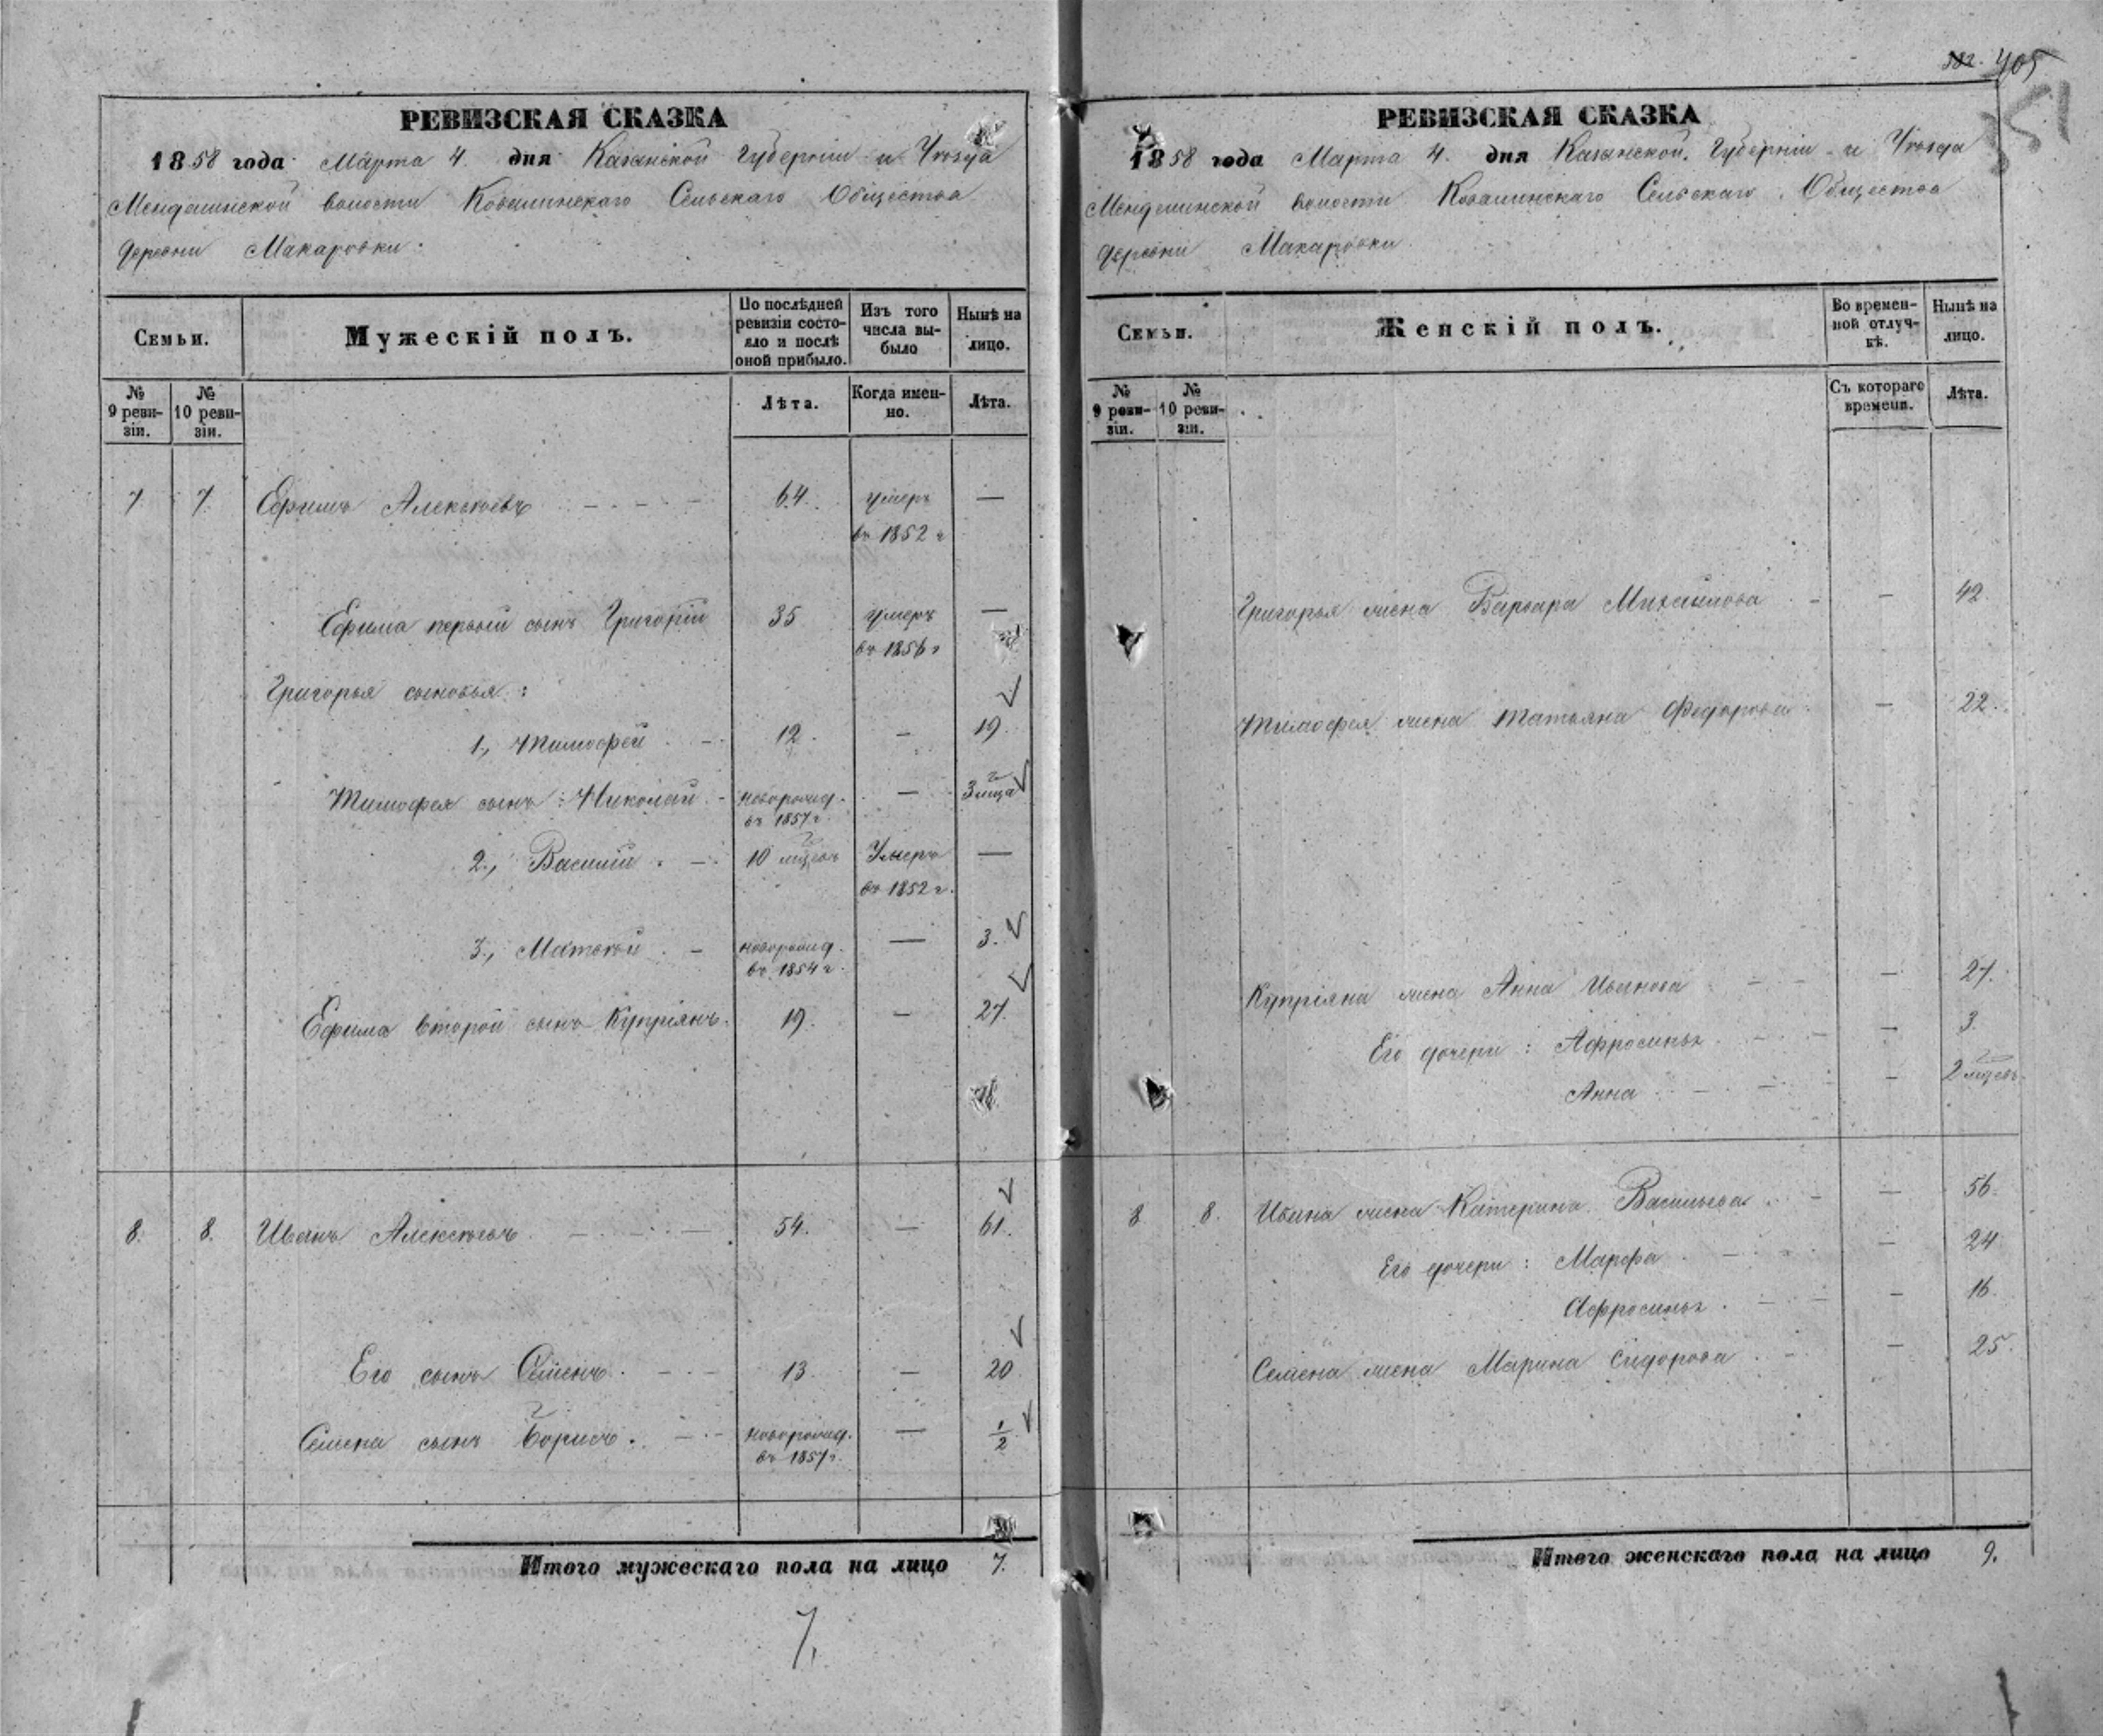 РЕВИЗСКАЯ СКАЗКА
1858 года Марта 4. дня Казанской Губерніи и Уѣзда
волости Ковалинскаго Сельскаго Общества
деревни Макаровки.
Семьи.
Мужескій полъ.
По послѣдней ревизіи состояло и послѣ оной прибыло.
Изъ того числа выбыло
Нынѣ на лицо.
№ 9 ревизіи.
№ 10 ревизіи.
Лѣта.
Когда именно.
Лѣта.
7 7 Ефимъ Алексѣевъ 64. умеръ —
въ 1852 г
Ефима первый сынъ Григорій 35 умеръ —
въ 1856 г
Григорья сыновья:
1., Тимофей 12. — 19.
Тимофея сынъ: Николай новорожд. — 3 м-ца
въ 1857 г.
2., Василій 10 м-цевъ Умеръ —
въ 1852 г.
3., Матвѣй новорожд. — 3.
въ 1854 г.
Ефима второй сынъ Купріянъ. 19. — 27.
8. 8. Иванъ Алексѣевъ 54. — 61.
Его сынъ Семенъ. 13. — 20
Семена сынъ Борисъ. новорожд. — 1/2
въ 1857 г.
Итого мужескаго пола на лицо 7.
7.
405
РЕВИЗСКАЯ СКАЗКА
1858 года Марта 4. дня Казанской Губерніи и Уѣзда
волости Ковалинскаго Сельскаго Общества
деревни Макаровки
Семьи.
Женскій полъ.
Во временной отлучкѣ.
Нынѣ на лицо.
№ 9 ревизіи.
№ 10 ревизіи.
Съ котораго времени.
Лѣта.
Григорья жена Варвара Михайлова — 42.
Тимофея жена Татьяна Федорова — 22.
Купріяна жена Анна Иванова — 27.
Его дочери: Афросинья — 3.
Анна — 2 м-цевъ.
8 8. Ивана жена Катерина Васильева — 56.
Его дочери: Марфа — 24
Афросинья. — 16.
Семена жена Марина Сидорова — 25.
Итого женскаго пола на лицо 9.